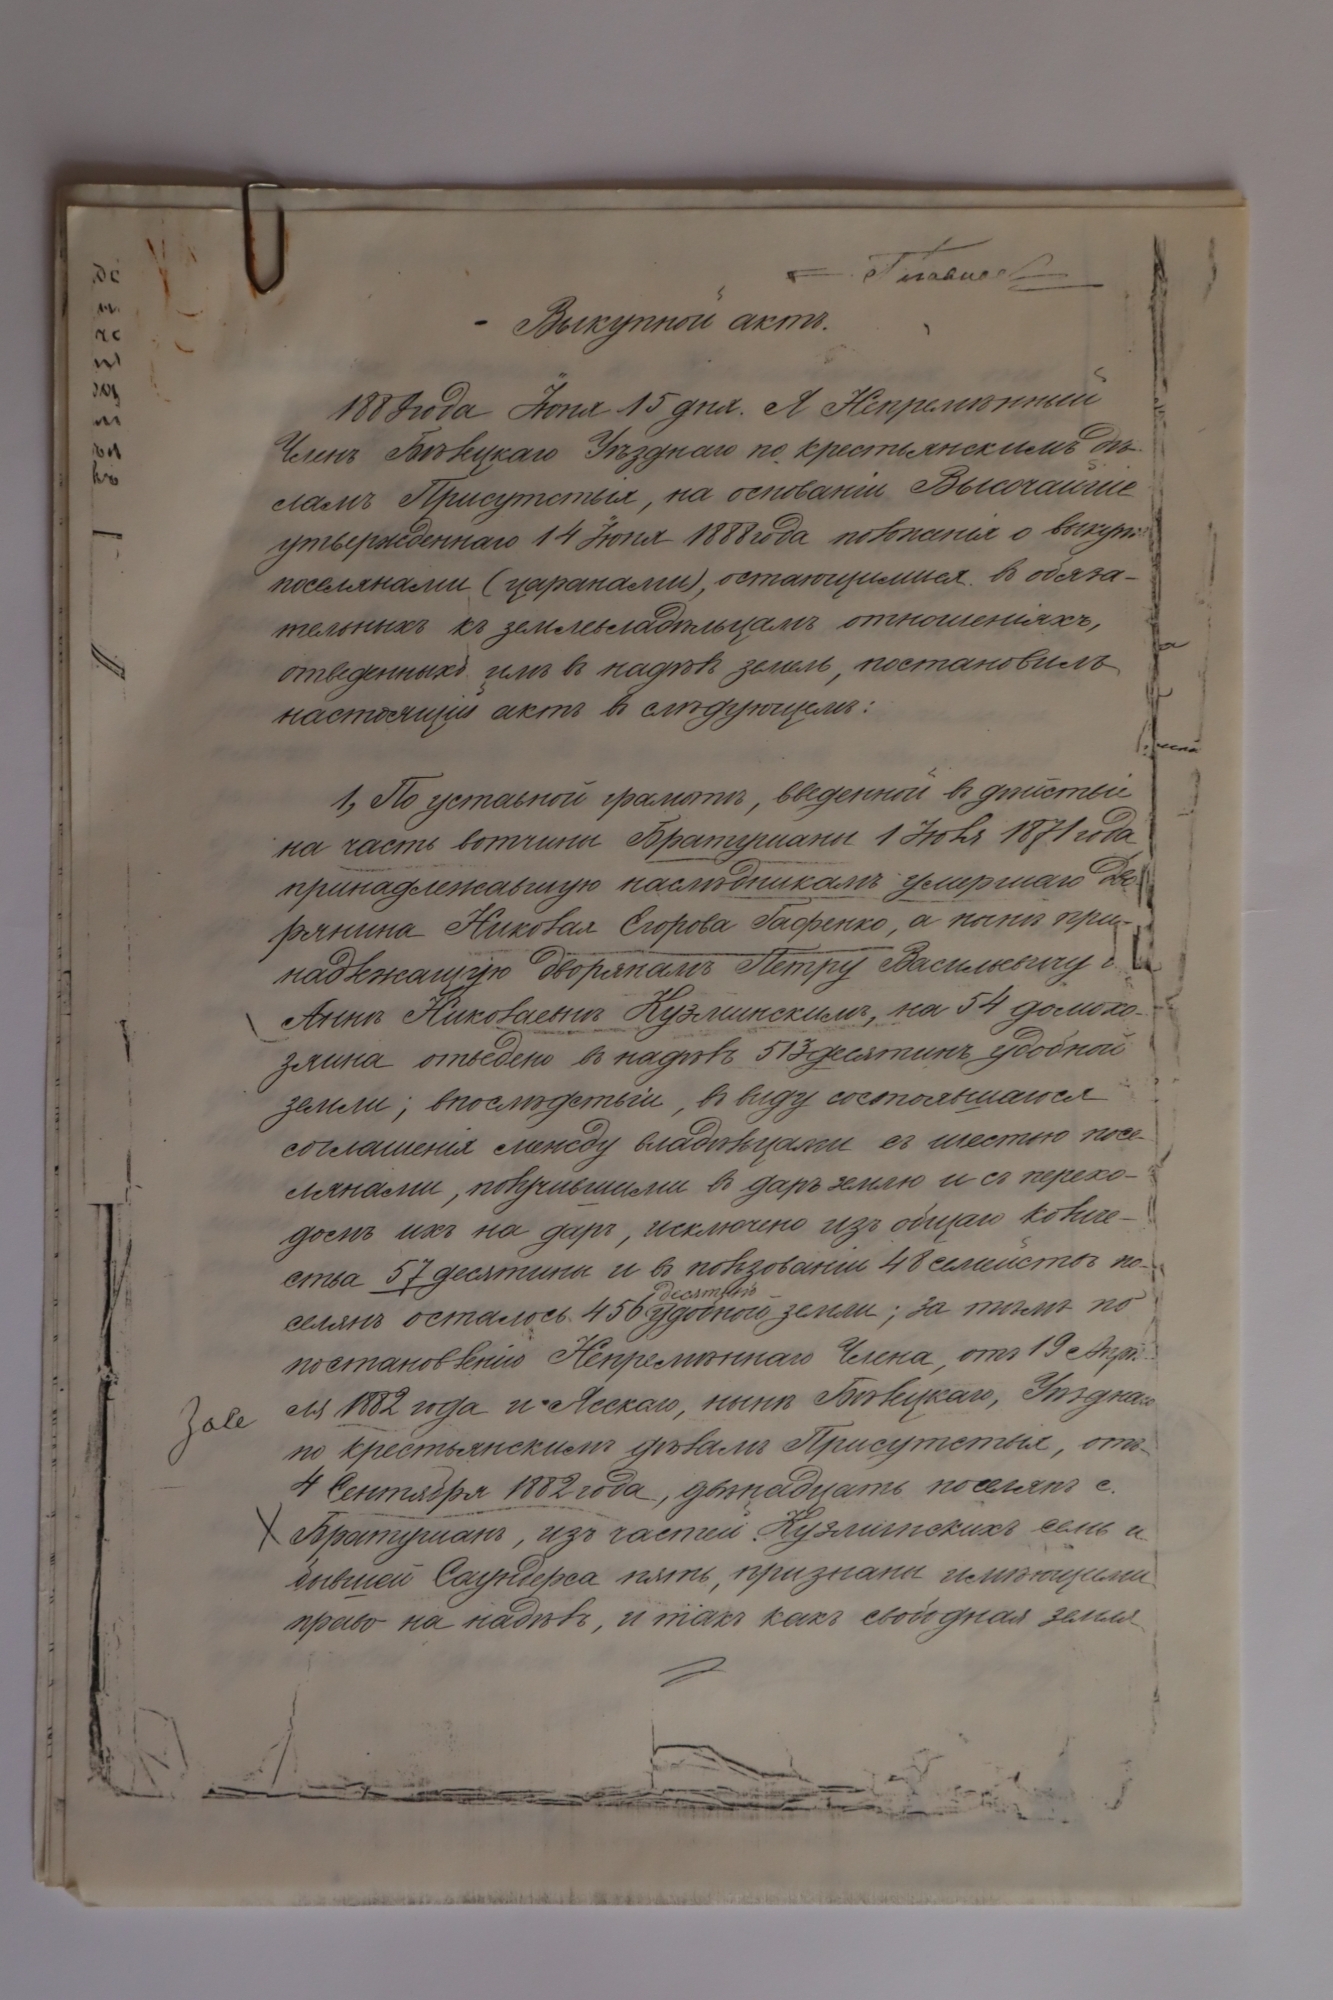 Выкупной актъ.
188 года Іюня 15 дня. Я Непремѣнный
Членъ Бѣлецкаго Уѣзднаго по крестьянскимъ дѣ-
ламъ Присутствія, на основаніи Высочайше
утвержденнаго 14 Іюня 1888 года положенія о выкупѣ
поселянами (царанами), остающимися въ обяза-
тельныхъ къ землевладѣльцамъ отношеніяхъ,
отведенныхъ имъ въ надѣлъ земель, постановилъ
настоящій актъ въ слѣдующемъ:
1, По уставной грамотѣ, введенной въ дѣйствіе
на часть вотчины Братушаны 1 Іюля 1871 года
принадлежавшую наслѣдникамъ умершаго Дво-
рянина Николая Егорова Гафенко, а нынѣ при-
надлежащую дворянамъ Петру Васильевичу и
Аннѣ Николаевнѣ Кузминскимъ, на 54 домохо-
зяина отведено въ надѣлъ 513 десятинъ удобной
земли; впослѣдствіи, въ виду состоявшагося
соглашенія между владѣльцами съ шестью посе-
лянами, получившими въ даръ землю и съ перехо-
домъ ихъ на даръ, исключено изъ общаго количе-
ства 57 десятины и въ пользованіи 48 семействъ по-
десятинъ
селянъ осталось 456 удобной земли; за тѣмъ по
постановленію Непремѣннаго Члена, отъ 19 Апрѣ-
ля 1882 года и Ясскаго, нынѣ Бѣлецкаго, Уѣзднаго
Zale
по крестьянскимъ дѣламъ Присутствія, отъ
4 Сентября 1882 года, двѣнадцать поселянъ с.
X Братушанъ, изъ частей Кузминскихъ семь и
бывшей Саундерса пять, признаны имѣющими
право на надѣлъ, и такъ какъ свободная земля